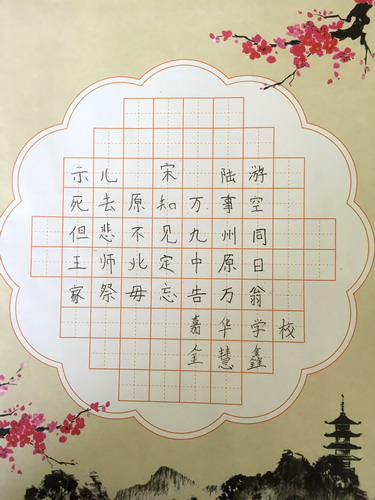 示儿 宋 陆游
死去原知万事空
但悲不见九州同
王师北定中原日
家祭毋忘告万翁
嘉华学校
金慧鑫